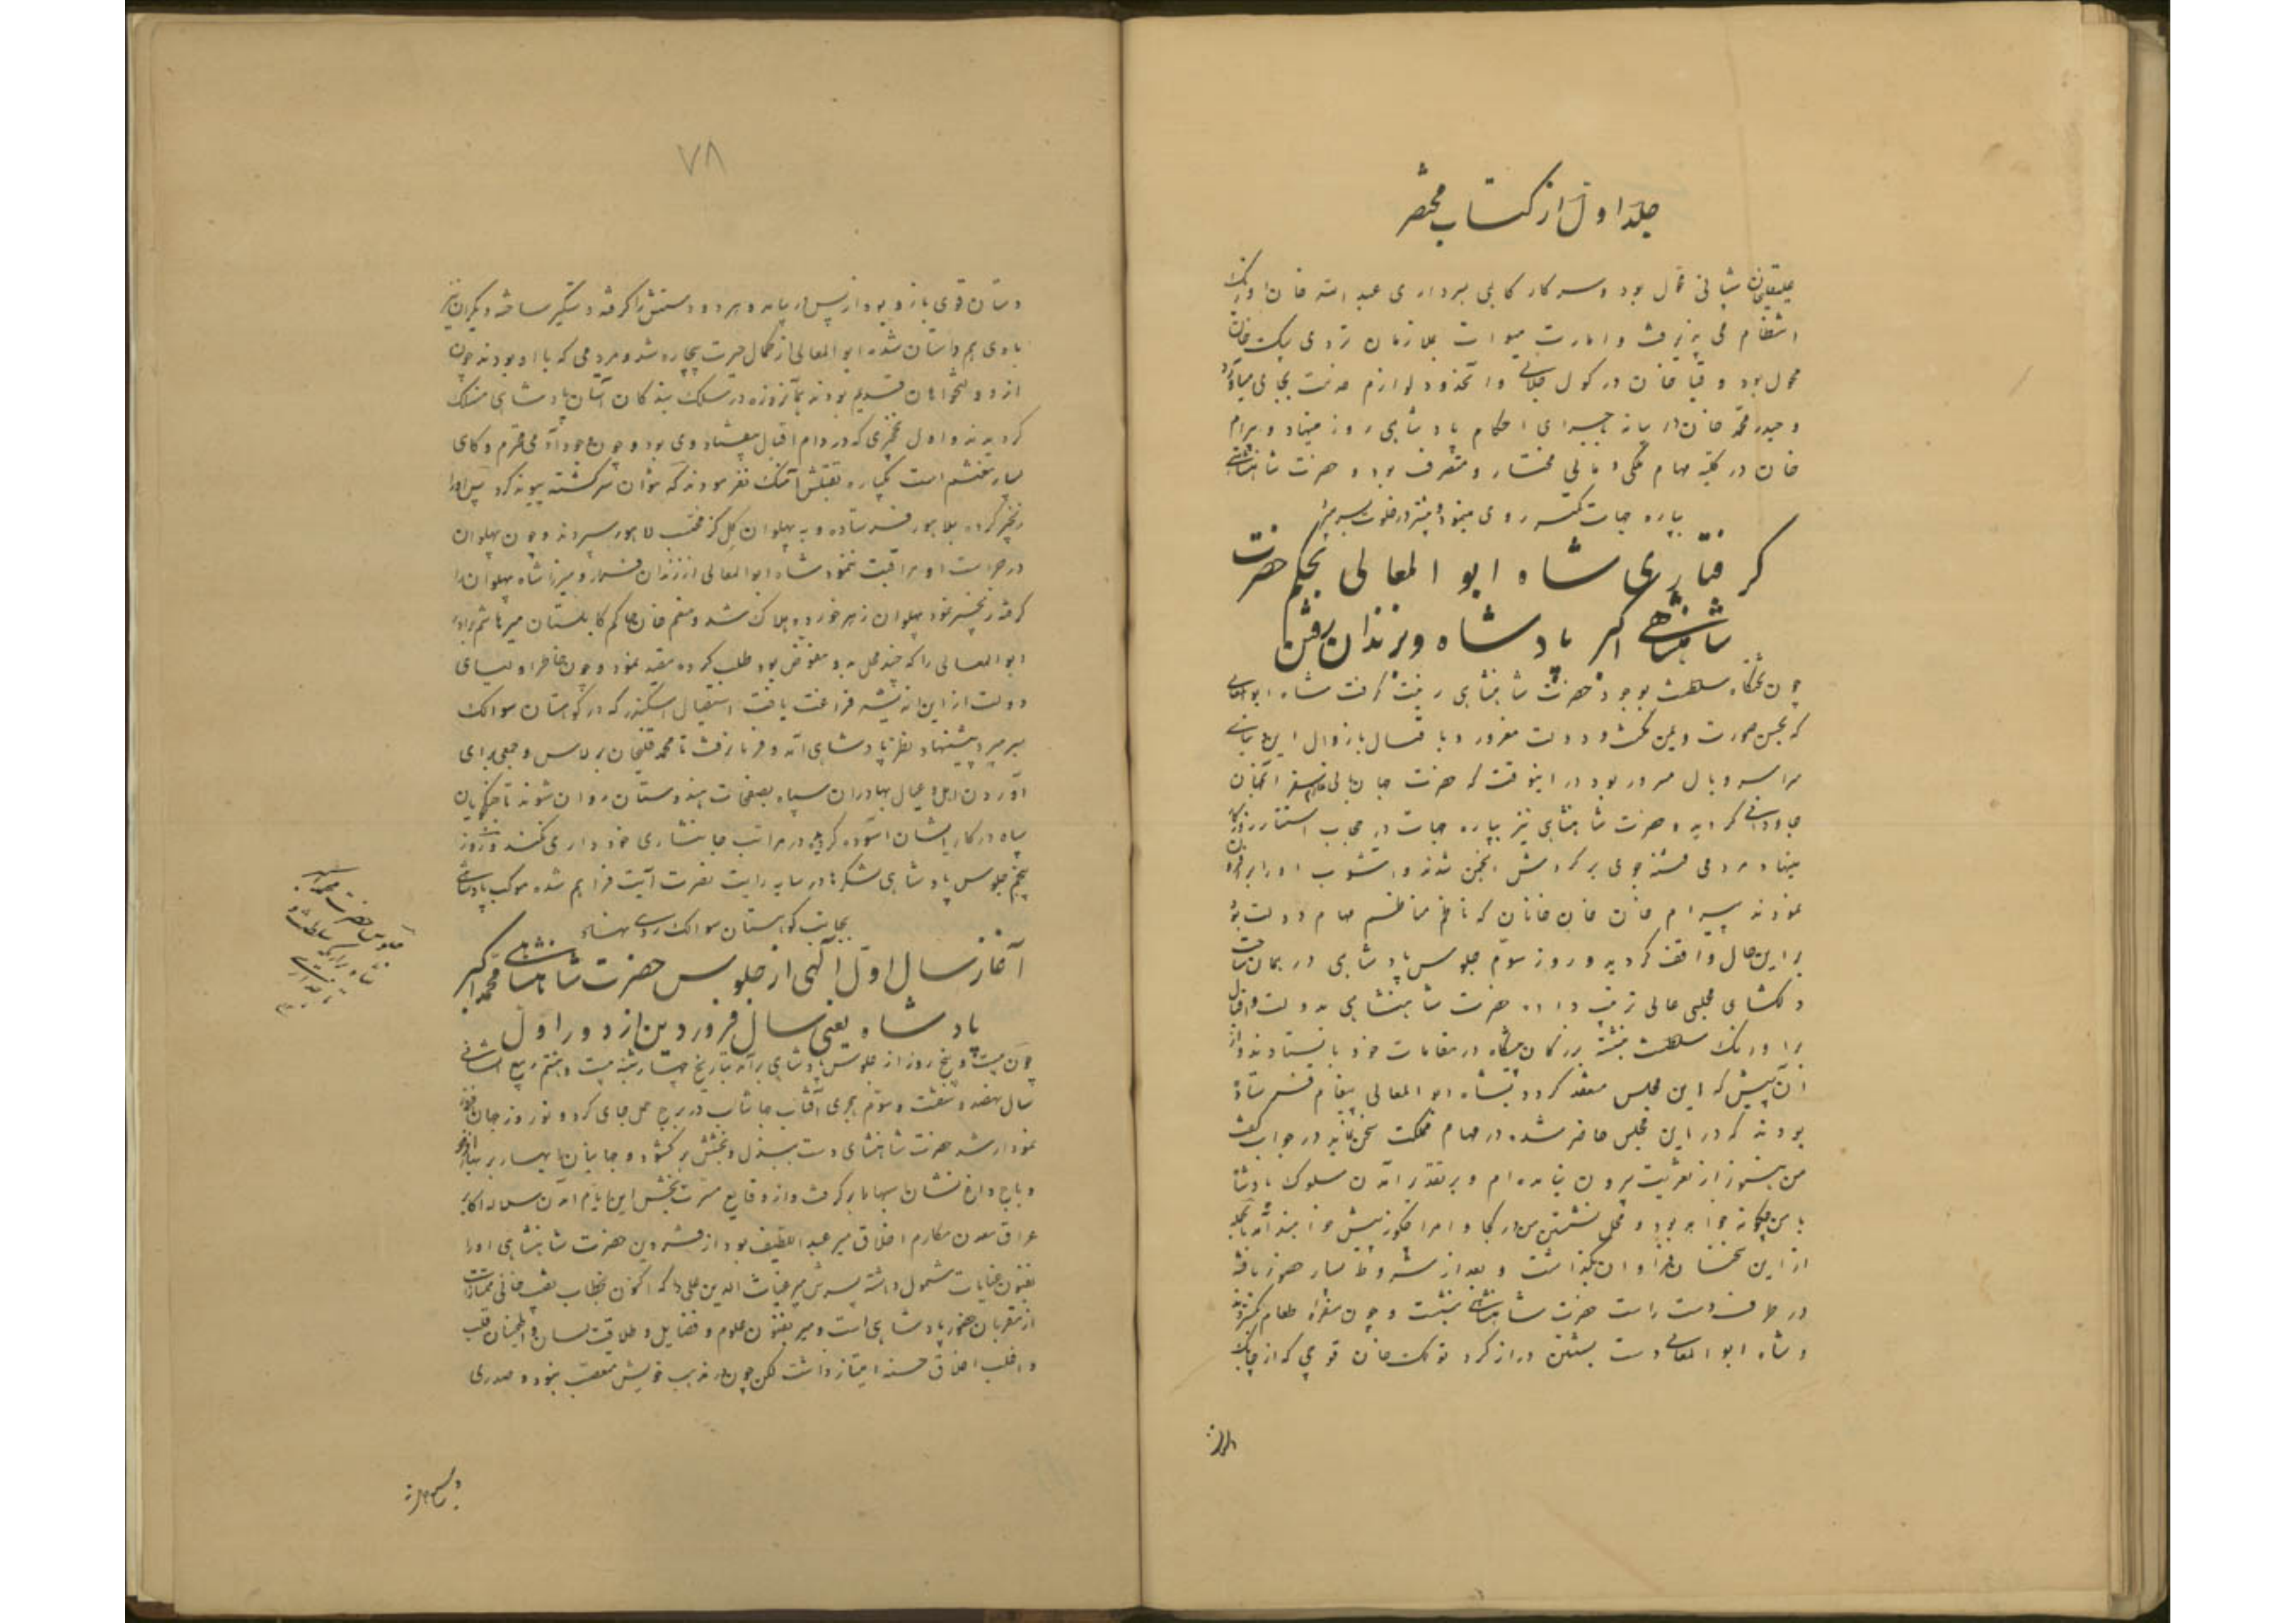 جلد اول از کتاب مختصر
علیقلیخان شیبانی محول بود و سرکار کالپی بسرداری عبدالله خان اوزبک
انتظام می پذیرفت و امارت میوات بملازمان تردی بیک خان
محول بود و قیا خان در کول جلالی و آنحدود لوازم خدمت بجای میآورد
و حیدر محمد خان در بیانه باجرای احکام پادشاهی روز مینهاد و بیرام
خان در کلیه مهام ملکی و مالی مختار و متصرف بود و حضرت شاهنشاهی
بپاره جهات کمتر روی مینمود و بیشتر در خلوت بسر میبرد
گرفتاری شاه ابو المعالی بحکم حضرت
شاهنشاهی اکبر پادشاه و بزندان رفتن
چون تختگاه سلطنت بوجود حضرت شاهنشاهی زینت گرفت شاه ابوالمعالی
که بحسن صورت و دولت مغرور و با قبال بازوال این
سرای وبال مسرور بود در اینوقت که حضرت جهانبانی عازم سفر آنجهان
جاودانی گردید و حضرت شاهنشاهی نیز بپاره جهات در حجاب استتار روزگار
مینهاد مردمی فتنه جوی بر گردش انجمن شدند و آشوب او را بر افزون
نمودند بیرام خان خان خانان که ناظم مناظم مهام دولت بود
بر این حال واقف گردید و روز سوم جلوس پادشاهی در همان ساحت
دلگشای مجلسی عالی ترتیب داد حضرت شاهنشاهی بدولت و اقبال
بر اورنگ سلطنت بنشسته بزرگان پیشگاه در مقامات خود بایستادند و از
آن پیش که این مجلس منعقد گردد بشاه ابو المعالی پیغام فرستاده
بودند که در این مجلس حاضر شده در مهام مملکت سخن نماید در جواب گفت
من هنوز از تعزیت بیرون نیامده ام و بر تقدیر آمدن سلوک پادشاه
با من چگونه خواهد بود و محل نشستن من در کجا و امرا چگونه پیش خواهند آمد بالجمله
از این سخنان فراوان بگذاشت و بعد از شروط بسیار حضور یافته
در طرف دست راست حضرت شاهنشاهی بنشست و چون سفره طعام بگستردند
و شاه ابو المعالی دست بشستن دراز کرد تولک خان قوچی که از چابک
۷۸
دستان قوی بازو بود از پس در بیامد و هر دو دستش را گرفته دستگیر ساخته دیگران نیز
با وی هم داستان شدند ابو المعالی از کمال حیرت بیچاره شد و مردمی که با او بودند چون
از دولتخواهان قدیم بودند بآنروزه در سلک بندگان آستان پادشاهی منسلک
گردیدند و اول نخجیری که در دام اقبال بیفتاد وی بود و چون وجود آدمی محترم و کای
بسیار مغتنم است یکباره بقتلش آهنگ نفرمودند که نتوان سر کشته پیوند کرد پس او را
زنجیر کرده بلاهور فرستاده و به پهلوان گل گز محتسب لاهور سپردند و چون پهلوان
در حراست او مراقبت ننمود شاه ابو المعالی از زندان فرار و میرزا شاه پهلوان را
گرفته زنجیر نمود پهلوان زهر خورده هلاک شد و منعم خان حاکم کابلستان میر هاشم برادر
ابوالمعالی را که چند محل بدو مفوض بود طلب کرده مقید نمود و چون خاطر اولیای
دولت از این اندیشه فراغت یافت استیصال اسکندر که در کوهستان سوالک
بسر میبرد پیشنهاد نظر پادشاهی آمد و فرمان رفت تا محمد قلیخان برلاس و جمعی برای
آوردن اهل و عیال بهادران سپاه بصفحات هندوستان روان شوند تا جنگجویان
سپاه در کار ایشان آسوده گردیده در مراتب جانسپاری خودداری نکنند و روز
پنجم جلوس پادشاهی لشکرها در سایه رایت نصرت آیت فراهم شده موکب پادشاهی
بجانب کوهستان سوالک روی نهاد
آغاز سال اول الهی از جلوس حضرت شاهنشاهی محمد اکبر
پادشاه یعنی سال فروردین از دور اول
چون بیست و پنج روز از جلوس پادشاهی برآمد بتاریخ چهارشنبه بیست و هشتم ربیع الثانی
سال نهصد و شصت و سوم هجری آفتاب جهانتاب در برج حمل جای کرد و نوروز جهان افروز
نمودار شد حضرت شاهنشاهی دست ببذل و بخشش برگشود و جهانیانرا بهار بر بهار افزود
و باج داغ نشان سپاها برگرفت و از وقایع مسرت بخش این ایام آمدن سلاله اکابر
عراق معدن مکارم اخلاق میر عبد اللطیف بود از قزوین حضرت شاهنشاهی او را
بفنون عنایات مشمول داشته پسرش میر غیاث الدین علی را که اکنون بخطاب نقیب خانی ممتاز است
از مقربان حضور پادشاهی است و میر بفنون علوم و فضایل و طلاقت لسان و اطمینان قلب
و اغلب اخلاق حسنه امتیاز داشت لکن چون در مذهب خویش متعصب نبود و صدری
جلوس حضرت محمد اکبر
شاه بر اریکه سلطنت و
تاجداری